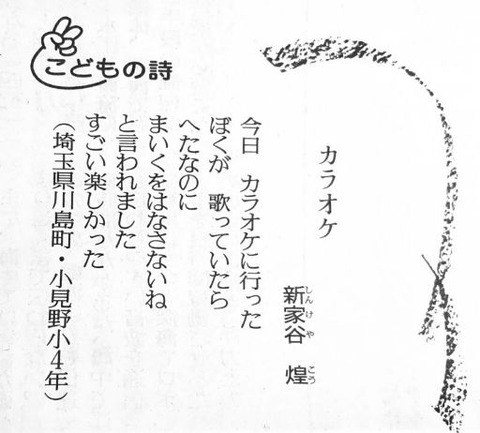 こどもの詩
カラオケ
新家谷 煌
しんけや こう
今日 カラオケに行った
ぼくが 歌っていたら
へたなのに
まいくをはなさないね
と言われました
すごい楽しかった
(埼玉県川島町・小見野小4年)